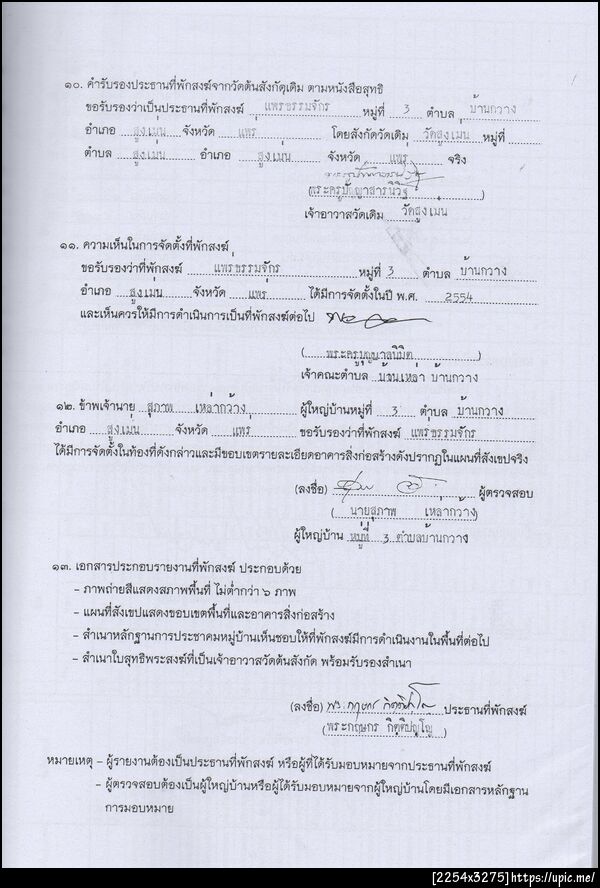 ๑๐. คำรับรองประธานที่พักสงฆ์จากวัดต้นสังกัดเดิม ตามหนังสือสุทธิ
ขอรับรองว่าเป็นประธานที่พักสงฆ์ แพรธรรมจักร หมู่ที่ 3 ตำบล บ้านกวาง
อำเภอ สูงเม่น จังหวัด แพร่ โดยสังกัดวัดเดิม วัดสูงเม่น หมู่ที่
ตำบล สูงเม่น อำเภอ สูงเม่น จังหวัด แพร่ จริง
(พระครูปัญญาสารนิวิฐ)
เจ้าอาวาสวัดเดิม วัดสูงเม่น
๑๑. ความเห็นในการจัดตั้งที่พักสงฆ์
ขอรับรองว่าที่พักสงฆ์ แพรธรรมจักร หมู่ที่ 3 ตำบล บ้านกวาง
อำเภอ สูงเม่น จังหวัด แพร่ ได้มีการจัดตั้งในปี พ.ศ. 2554
และเห็นควรให้มีการดำเนินการเป็นที่พักสงฆ์ต่อไป
(พระครูบุญบาลนิมิต)
เจ้าคณะตำบล บ้านเหล่า บ้านกวาง
๑๒. ข้าพเจ้านาย สุภาพ เหล่ากว้าง ผู้ใหญ่บ้านหมู่ที่ 3 ตำบล บ้านกวาง
อำเภอ สูงเม่น จังหวัด แพร่ ขอรับรองว่าที่พักสงฆ์ แพรธรรมจักร
ได้มีการจัดตั้งในท้องที่ดังกล่าวและมีขอบเขตรายละเอียดอาคารสิ่งก่อสร้างดังปรากฏในแผนที่สังเขปจริง
(ลงชื่อ) ผู้ตรวจสอบ
(นายสุภาพ เหล่ากว้าง)
ผู้ใหญ่บ้าน หมู่ที่ 3 ตำบลบ้านกวาง
๑๓. เอกสารประกอบรายงานที่พักสงฆ์ ประกอบด้วย
– ภาพถ่ายสีแสดงสภาพพื้นที่ ไม่ต่ำกว่า ๖ ภาพ
– แผนที่สังเขปแสดงขอบเขตพื้นที่และอาคารสิ่งก่อสร้าง
– สำเนาหลักฐานการประชาคมหมู่บ้านเห็นชอบให้ที่พักสงฆ์มีการดำเนินงานในพื้นที่ต่อไป
– สำเนาใบสุทธิพระสงฆ์ที่เป็นเจ้าอาวาสวัดต้นสังกัด พร้อมรับรองสำเนา
(ลงชื่อ) พระ กฤษกร กิตฺติปญฺโญ ประธานที่พักสงฆ์
(พระกฤษกร กิตฺติปญฺโญ)
หมายเหตุ – ผู้รายงานต้องเป็นประธานที่พักสงฆ์ หรือผู้ที่ได้รับมอบหมายจากประธานที่พักสงฆ์
– ผู้ตรวจสอบต้องเป็นผู้ใหญ่บ้านหรือผู้ได้รับมอบหมายจากผู้ใหญ่บ้านโดยมีเอกสารหลักฐาน
การมอบหมาย
[2254x3275]https://upic.me/